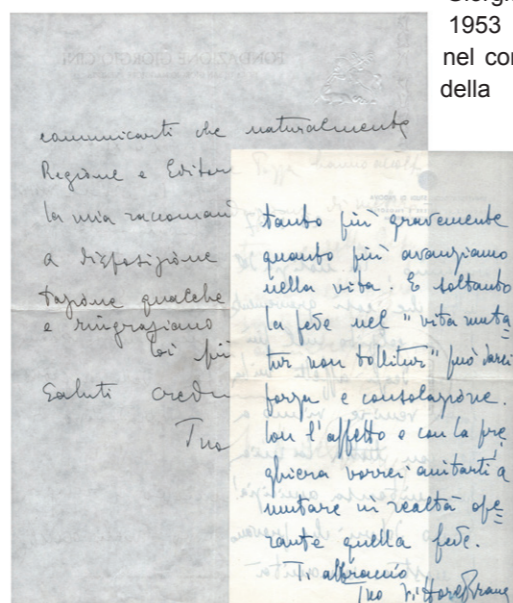 1953
nel con
della
FONDAZIONE GIORGIO CINI
comunicarti che naturalmente
Regione e Editore
la mia raccoman
a disposizione
tazione qualche
e ringraziano
Coi più
Saluti cred
Tuo
tanto più gravemente
quanto più avanziamo
nella vita. E soltanto
la fede nel "vita muta=
tur non tollitur" può darci
forza e consolazione.
Con l'affetto e con la pre=
ghiera vorrei aiutarti a
mutare in realtà ope=
rante quella fede.
Ti abbraccio
Tuo Vittore Branca